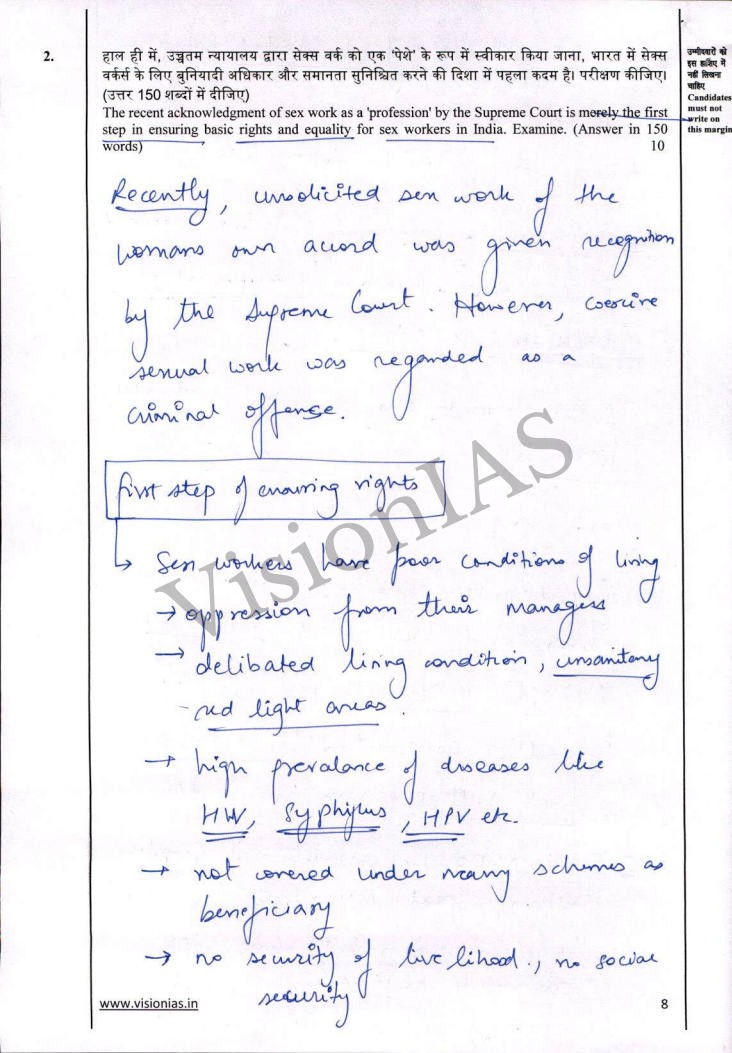 2.
हाल ही में, उच्चतम न्यायालय द्वारा सेक्स वर्क को एक 'पेशे' के रूप में स्वीकार किया जाना, भारत में सेक्स
वर्कर्स के लिए बुनियादी अधिकार और समानता सुनिश्चित करने की दिशा में पहला कदम है। परीक्षण कीजिए।
(उत्तर 150 शब्दों में दीजिए)
The recent acknowledgment of sex work as a 'profession' by the Supreme Court is merely the first
step in ensuring basic rights and equality for sex workers in India. Examine. (Answer in 150
words) 10
उम्मीदवारों को
इस हाशिए में
नहीं लिखना
चाहिए
Candidates
must not
write on
this margin
Recently, unsolicited sex work of the
womans own accord was given recognition
by the Supreme Court. However, coercive
sexual work was regarded as a
criminal offense.
first step of ensuring rights
↳ Sex workers have poor conditions of living
→ oppression from their managers
→ delibated living condition, unsanitary
- red light areas.
→ high prevalance of diseases like
HIV, Syphylus, HPV etc.
→ not covered under many schemes as
beneficiary
→ no security of livelihood., no social
security
VisionIAS
www.visionias.in 8